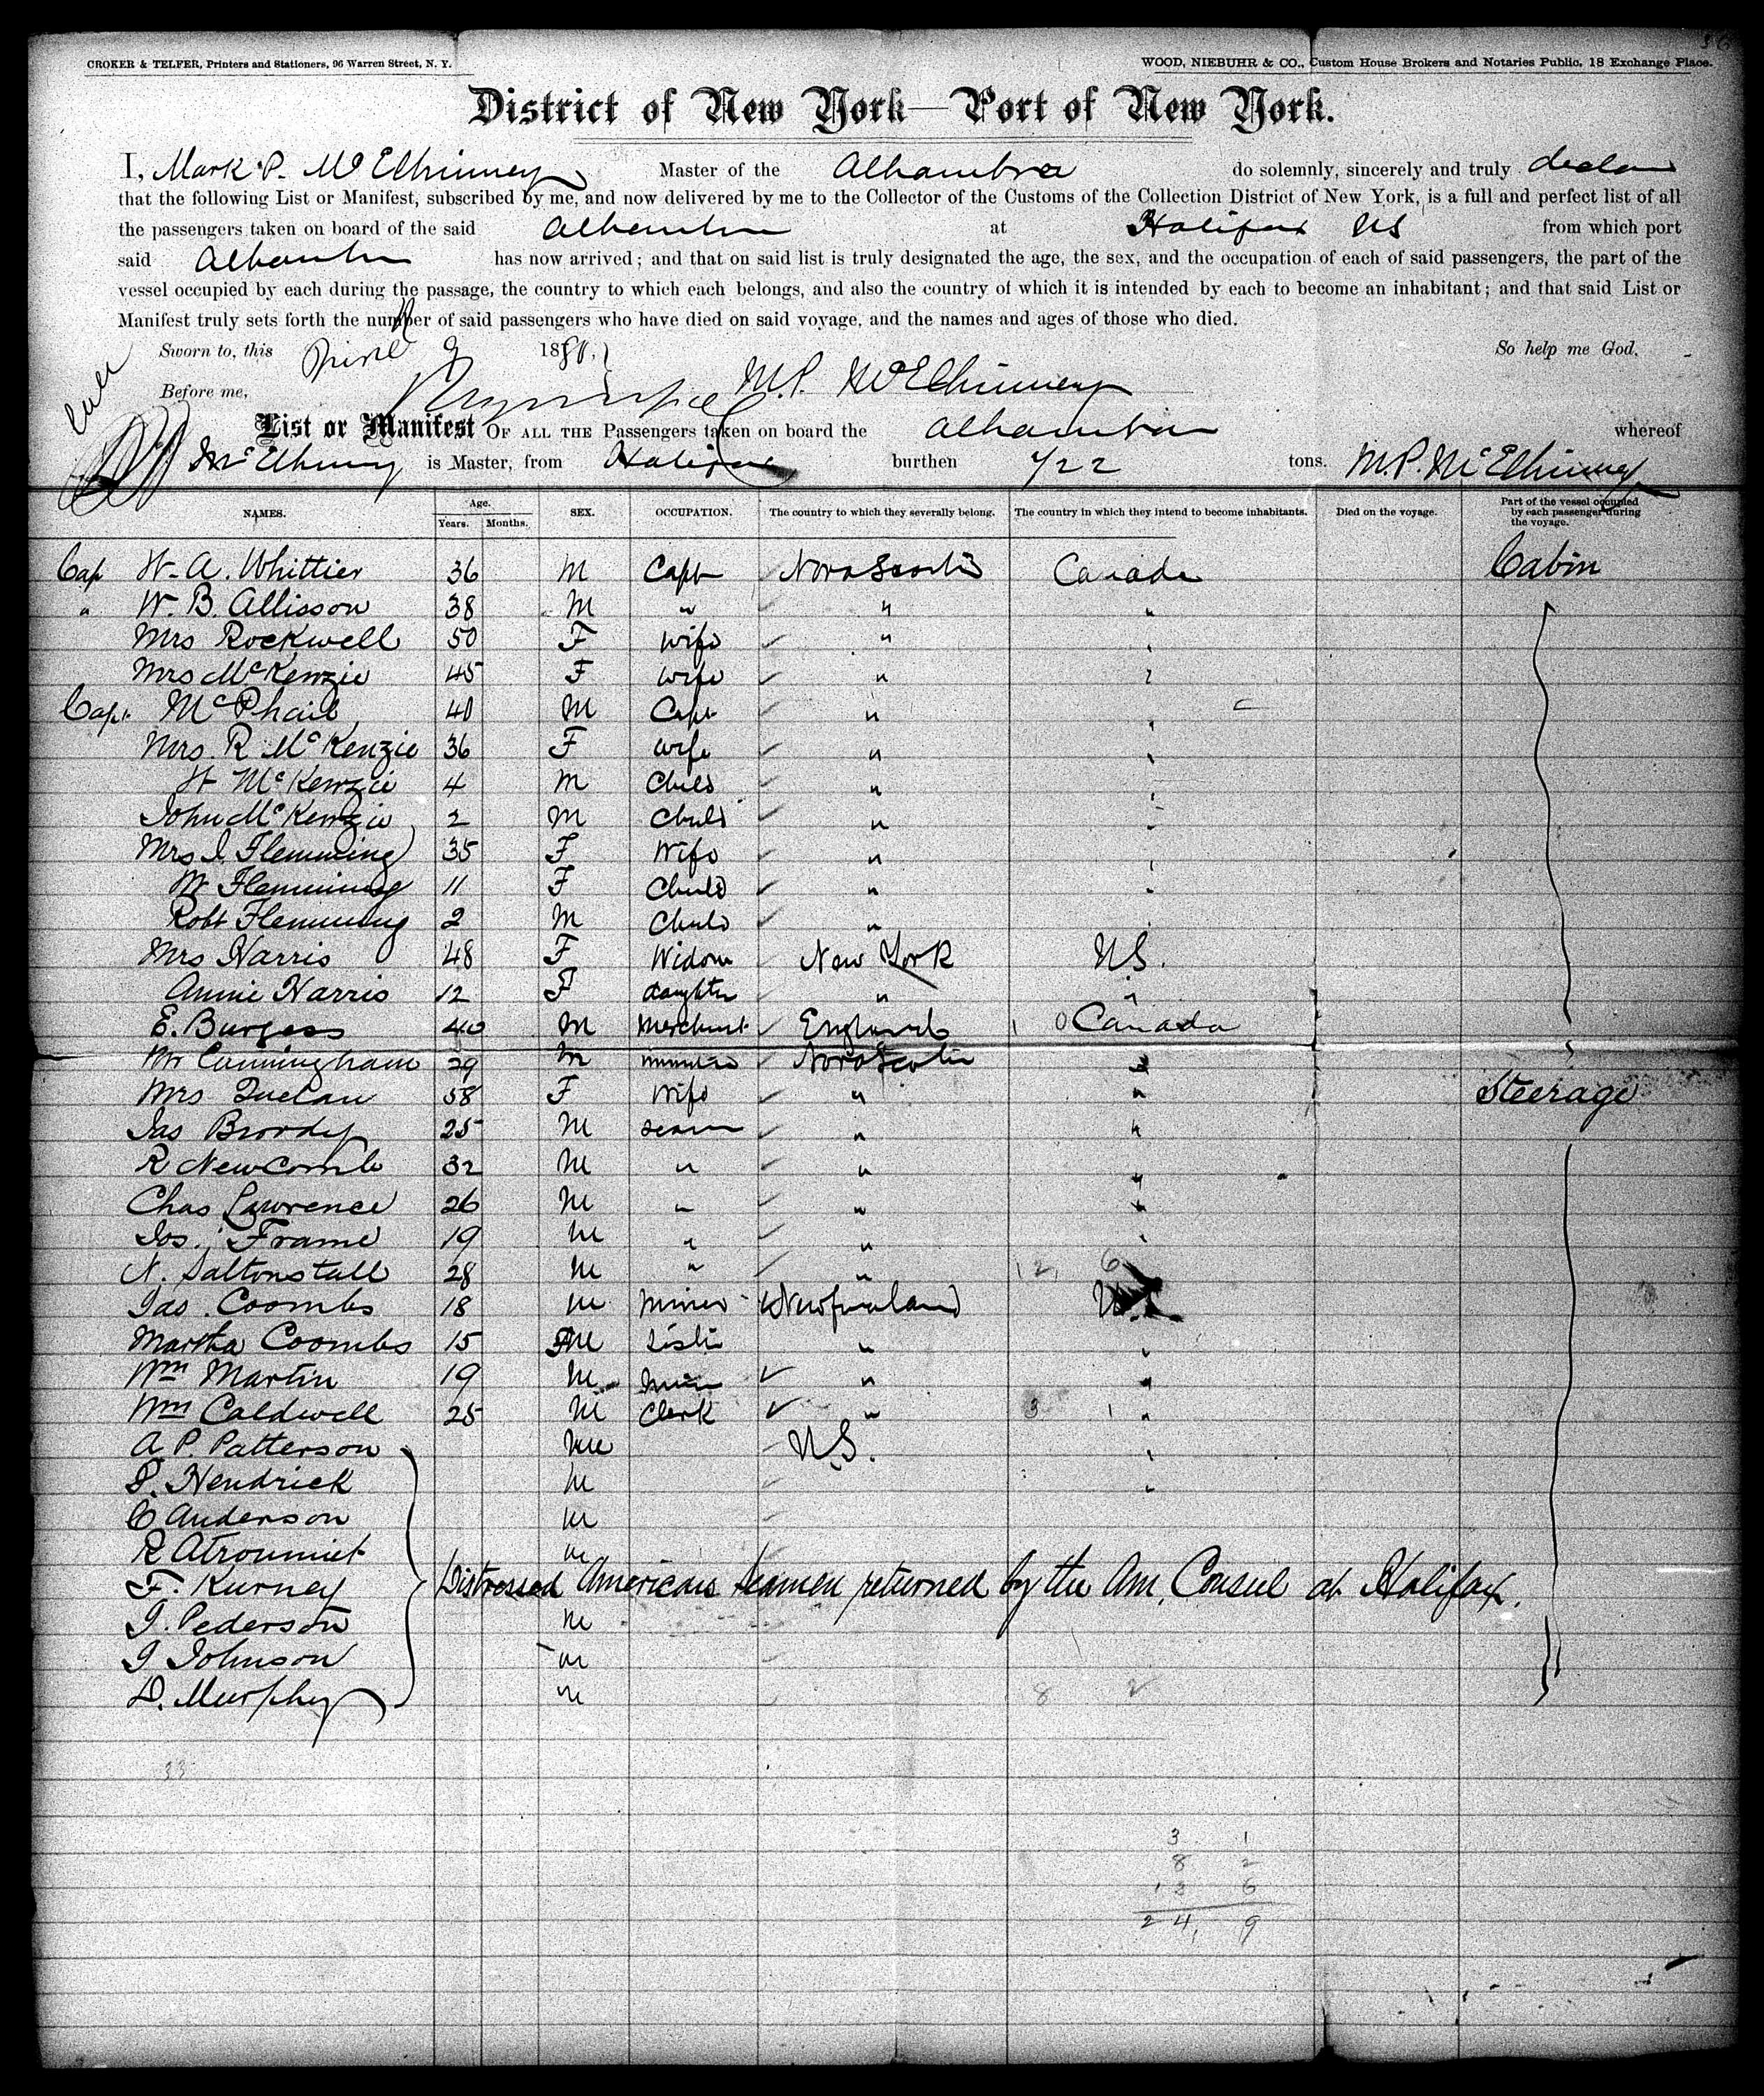 36
CROKER & TELFER, Printers and Stationers, 96 Warren Street, N. Y. WOOD, NIEBUHR & CO., Custom House Brokers and Notaries Public, 18 Exchange Place.
District of New York—Port of New York.
I, Mark P. McElhinney Master of the Alhambra do solemnly, sincerely and truly declare
that the following List or Manifest, subscribed by me, and now delivered by me to the Collector of the Customs of the Collection District of New York, is a full and perfect list of all
the passengers taken on board of the said Alhambra at Halifax NS from which port
said Alhambra has now arrived; and that on said list is truly designated the age, the sex, and the occupation of each of said passengers, the part of the
vessel occupied by each during the passage, the country to which each belongs, and also the country of which it is intended by each to become an inhabitant; and that said List or
Manifest truly sets forth the number of said passengers who have died on said voyage, and the names and ages of those who died.
Sworn to, this 9 1880, So help me God.
Before me, M.P. McElhinney
List or Manifest OF ALL THE Passengers taken on board the Alhambra whereof
McElhinney is Master, from Halifax burthen 722 tons. M.P. McElhinney
NAMES. Age. Years. Months. SEX. OCCUPATION. The country to which they severally belong. The country in which they intend to become inhabitants. Died on the voyage. Part of the vessel occupied by each passenger during the voyage.
Cap H. A. Whittier 36 M Capt Nova Scotia Canada Cabin
" W. B. Allisson 38 M " " "
Mrs Rockwell 50 F Wife " "
Mrs McKenzie 45 F Wife " "
Capt. McPhail 40 M Capt " "
Mrs. R McKenzie 36 F Wife " "
H McKenzie 4 M Child " "
John McKenzie 2 M Child " "
Mrs I. Flemming 35 F Wife " "
M Flemming 11 F Child " "
Robt Flemming 2 M Child " "
Mrs Harris 48 F Widow New York U.S.
Annie Harris 12 F daughter " "
E. Burgess 40 M Merchant England Canada
Mr Cunningham 29 M Nova Scotia "
Mrs 58 F Wife " " Steerage
Jas Brordy 25 M seam " "
R Newcomb 32 M " " "
Chas Lawrence 26 M " " "
Jos. Frame 19 M " " "
N. Saltonstall 28 M " " 12, 6
Jas. Coombs 18 M Miner Newfoundland U.S.
Martha Coombs 15 F Sister " "
Wm Martin 19 M Miner " "
Wm Caldwell 25 M Clerk " 3 1 "
A. P. Patterson M U.S. "
P. Hendrick M "
C Anderson M
R Atroumiet M
F. Kurney Distressed American Seamen returned by the Am. Consul at Halifax.
J. Pederson M
J Johnson M
D. Murphy M 8 2
33
3 1
8 2
13 6
24, 9